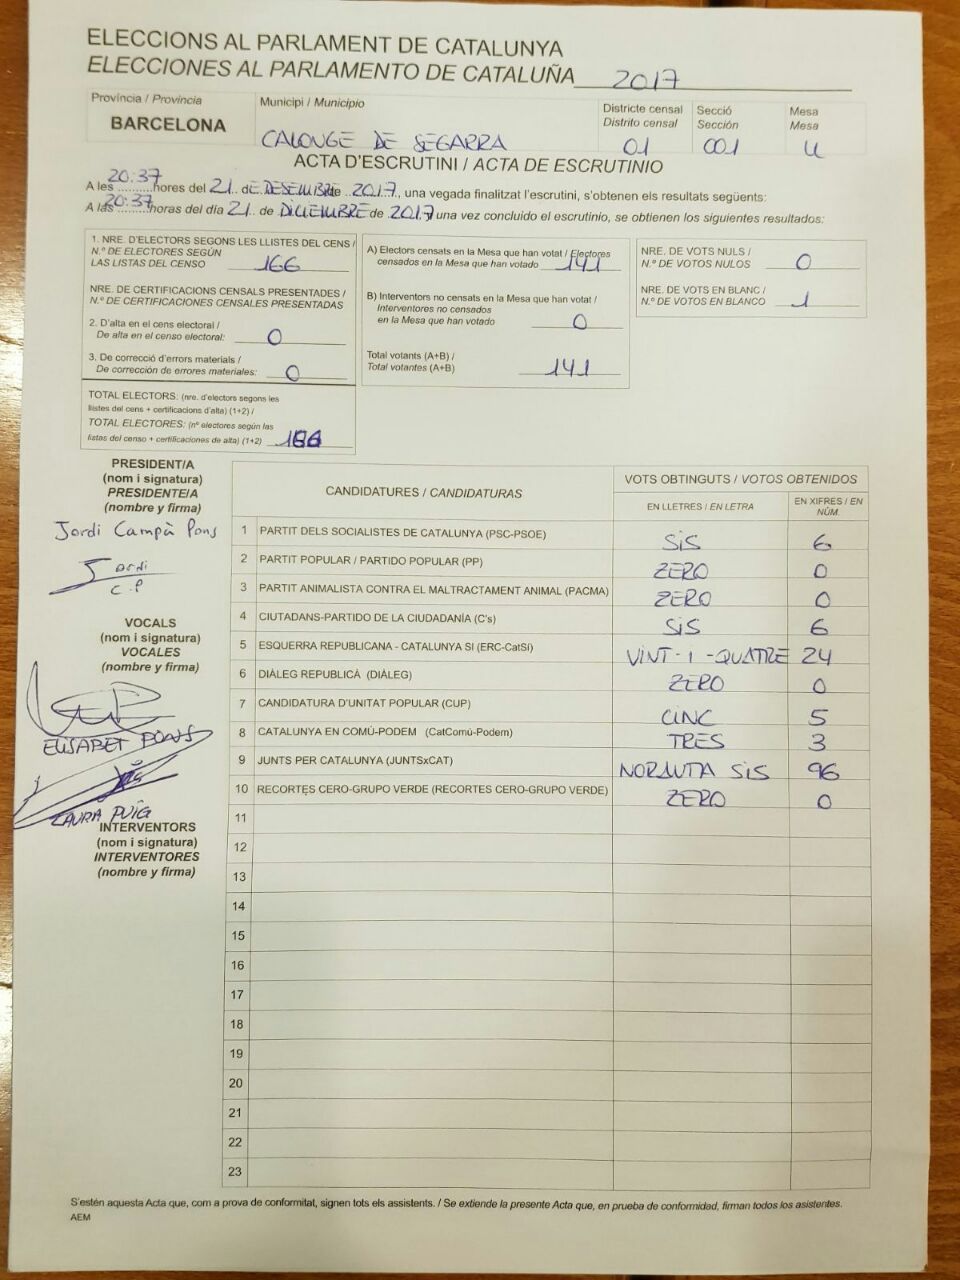 ELECCIONS AL PARLAMENT DE CATALUNYA
ELECCIONES AL PARLAMENTO DE CATALUÑA 2017
Província / Provincia
BARCELONA
Municipi / Municipio
CALONGE DE SEGARRA
Districte censal
Distrito censal
01
Secció
Sección
001
Mesa
Mesa
U
ACTA D'ESCRUTINI / ACTA DE ESCRUTINIO
A les 20:37 hores del 21 de DESEMBRE de 2017, una vegada finalitzat l'escrutini, s'obtenen els resultats següents:
A las 20:37 horas del día 21 de DICIEMBRE de 2017 una vez concluido el escrutinio, se obtienen los siguientes resultados:
1. NRE. D'ELECTORS SEGONS LES LLISTES DEL CENS /
N.º DE ELECTORES SEGÚN
LAS LISTAS DEL CENSO 166
NRE. DE CERTIFICACIONS CENSALS PRESENTADES /
N.º DE CERTIFICACIONES CENSALES PRESENTADAS
2. D'alta en el cens electoral /
De alta en el censo electoral: 0
3. De correcció d'errors materials /
De corrección de errores materiales: 0
TOTAL ELECTORS: (nre. d'electors segons les
llistes del cens + certificacions d'alta) (1+2) /
TOTAL ELECTORES: (nº electores según las
listas del censo + certificaciones de alta) (1+2) 166
A) Electors censats en la Mesa que han votat / Electores
censados en la Mesa que han votado 141
B) Interventors no censats en la Mesa que han votat /
Interventores no censados
en la Mesa que han votado 0
Total votants (A+B) /
Total votantes (A+B) 141
NRE. DE VOTS NULS /
N.º DE VOTOS NULOS 0
NRE. DE VOTS EN BLANC /
N.º DE VOTOS EN BLANCO 1
PRESIDENT/A
(nom i signatura)
PRESIDENTE/A
(nombre y firma)
Jordi Campà Pons
Jordi
C.P
VOCALS
(nom i signatura)
VOCALES
(nombre y firma)
ELISABET PONS
LAURA PUIG
INTERVENTORS
(nom i signatura)
INTERVENTORES
(nombre y firma)
CANDIDATURES / CANDIDATURAS
VOTS OBTINGUTS / VOTOS OBTENIDOS
EN LLETRES / EN LETRA
EN XIFRES / EN
NÚM.
1 PARTIT DELS SOCIALISTES DE CATALUNYA (PSC-PSOE) SIS 6
2 PARTIT POPULAR / PARTIDO POPULAR (PP) ZERO 0
3 PARTIT ANIMALISTA CONTRA EL MALTRACTAMENT ANIMAL (PACMA) ZERO 0
4 CIUTADANS-PARTIDO DE LA CIUDADANÍA (C's) SIS 6
5 ESQUERRA REPUBLICANA - CATALUNYA SI (ERC-CatSí) VINT-I-QUATRE 24
6 DIÀLEG REPUBLICÀ (DIÀLEG) ZERO 0
7 CANDIDATURA D'UNITAT POPULAR (CUP) CINC 5
8 CATALUNYA EN COMÚ-PODEM (CatComú-Podem) TRES 3
9 JUNTS PER CATALUNYA (JUNTSxCAT) SIS 96
10 RECORTES CERO-GRUPO VERDE (RECORTES CERO-GRUPO VERDE) ZERO 0
11
12
13
14
15
16
17
18
19
20
21
22
23
S'estén aquesta Acta que, com a prova de conformitat, signen tots els assistents. / Se extiende la presente Acta que, en prueba de conformidad, firman todos los asistentes.
AEM